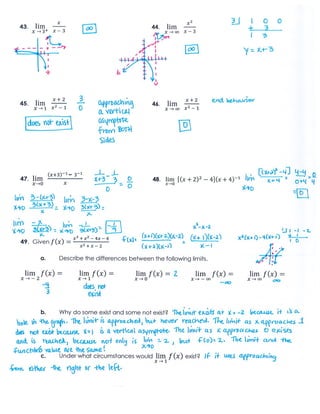 43. lim x→3⁺ x / x − 3 ∞
44. lim x→∞ x² / x − 3 ∞
3| 1 0 0
+ 3
1 3
y = x+3
45. lim x→1 x + 2 / x² − 1 3/0 approaching
a vertical
asymptote
from BOTH
sides
does not exist
46. lim x→∞ x + 2 / x² − 1 end behavior
0
47. lim x→0 (x+3)⁻¹ − 3⁻¹ / x = 0/0
lim x→0 3-(x+3) / 3(x+3) / x = lim x→0 3-x-3 / 3(x+3) / x
lim x→0 -x / 3(x+3) / x = lim x→0 -1 / 3(x+3) = -1/9
48. lim x→0 [(x + 2)² − 4](x + 4)⁻¹ lim x→0 [(x+2)² -4] / x+4 = 4-4 / 0+4 = 0/4
= 0
49. Given f(x) =
a. Describe the differences between the following limits.
lim x→−2 f(x) = lim x→1 f(x) = lim x→0 f(x) = 2 lim x→−∞ f(x) = lim x→∞ f(x) =
does not
exist
-∞ ∞
b. Why do some exist and some not exist? The limit exists at x = -2 because it is a
hole in the graph. The limit is approached, but never reached. The limit as x approaches 1
does not exist because x=1 is a vertical asymptote. The limit as x approaches 0 exists
and is reached, because not only is lim x→0 = 2, but f(0)=2. The limit and the
function's value are the same!
c. Under what circumstances would lim x→1 f(x) exist? If it was approaching
from either the right or the left.